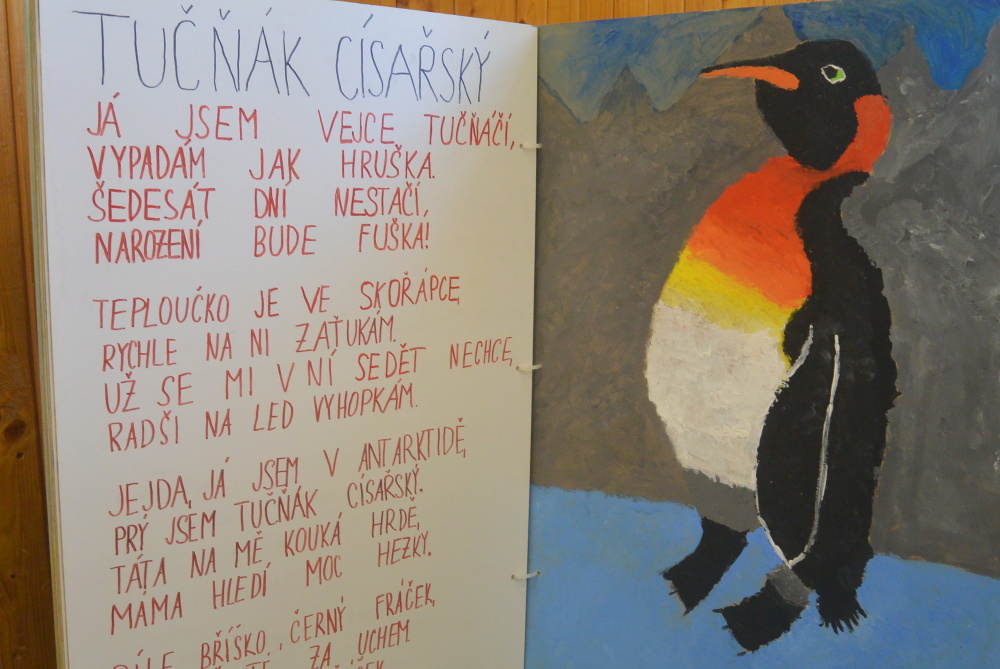 TUČŇÁK CÍSAŘSKÝ
JÁ JSEM VEJCE TUČŇÁČÍ,
VYPADÁM JAK HRUŠKA.
ŠEDESÁT DNÍ NESTAČÍ,
NAROZENÍ BUDE FUŠKA!
TEPLOUČKO JE VE SKOŘÁPCE,
RYCHLE NA NI ZAŤUKÁM.
UŽ SE MI V NÍ SEDĚT NECHCE,
RADŠI NA LED VYHOPKÁM.
JEJDA, JÁ JSEM V ANTARKTIDĚ,
PRÝ JSEM TUČŇÁK CÍSAŘSKÝ.
TÁTA NA MĚ KOUKÁ HRDĚ,
MÁMA HLEDÍ MOC HEZKY.
BÍLÉ BŘÍŠKO, ČERNÝ FRÁČEK,
ZA UCHEM